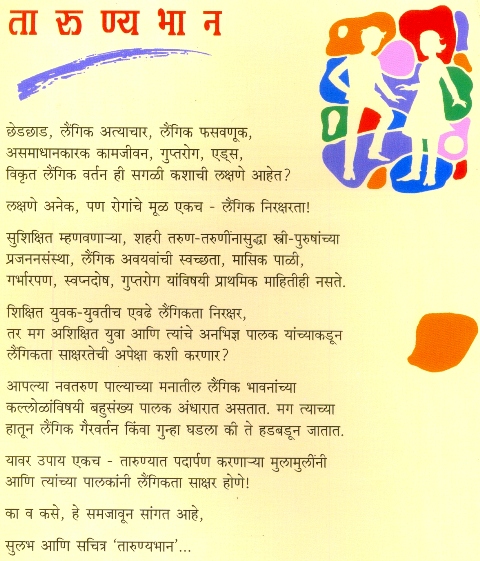 ता रू ण्य भा न
छेडछाड, लैंगिक अत्याचार, लैंगिक फसवणूक,
असमाधानकारक कामजीवन, गुप्तरोग, एड्स,
विकृत लैंगिक वर्तन ही सगळी कशाची लक्षणे आहेत?
लक्षणे अनेक, पण रोगांचे मूळ एकच - लैंगिक निरक्षरता!
सुशिक्षित म्हणवणाऱ्या, शहरी तरुण-तरुणींनासुद्धा स्त्री-पुरुषांच्या
प्रजननसंस्था, लैंगिक अवयवांची स्वच्छता, मासिक पाळी,
गर्भारपण, स्वप्नदोष, गुप्तरोग यांविषयी प्राथमिक माहितीही नसते.
शिक्षित युवक-युवतीच एवढे लैंगिकता निरक्षर,
तर मग अशिक्षित युवा आणि त्यांचे अनभिज्ञ पालक यांच्याकडून
लैंगिकता साक्षरतेची अपेक्षा कशी करणार?
आपल्या नवतरुण पाल्याच्या मनातील लैंगिक भावनांच्या
कल्लोळांविषयी बहुसंख्य पालक अंधारात असतात. मग त्याच्या
हातून लैंगिक गैरवर्तन किंवा गुन्हा घडला की ते हडबडून जातात.
यावर उपाय एकच - तारुण्यात पदार्पण करणाऱ्या मुलामुलींनी
आणि त्यांच्या पालकांनी लैंगिकता साक्षर होणे!
का व कसे, हे समजावून सांगत आहे,
सुलभ आणि सचित्र ‘तारुण्यभान’...